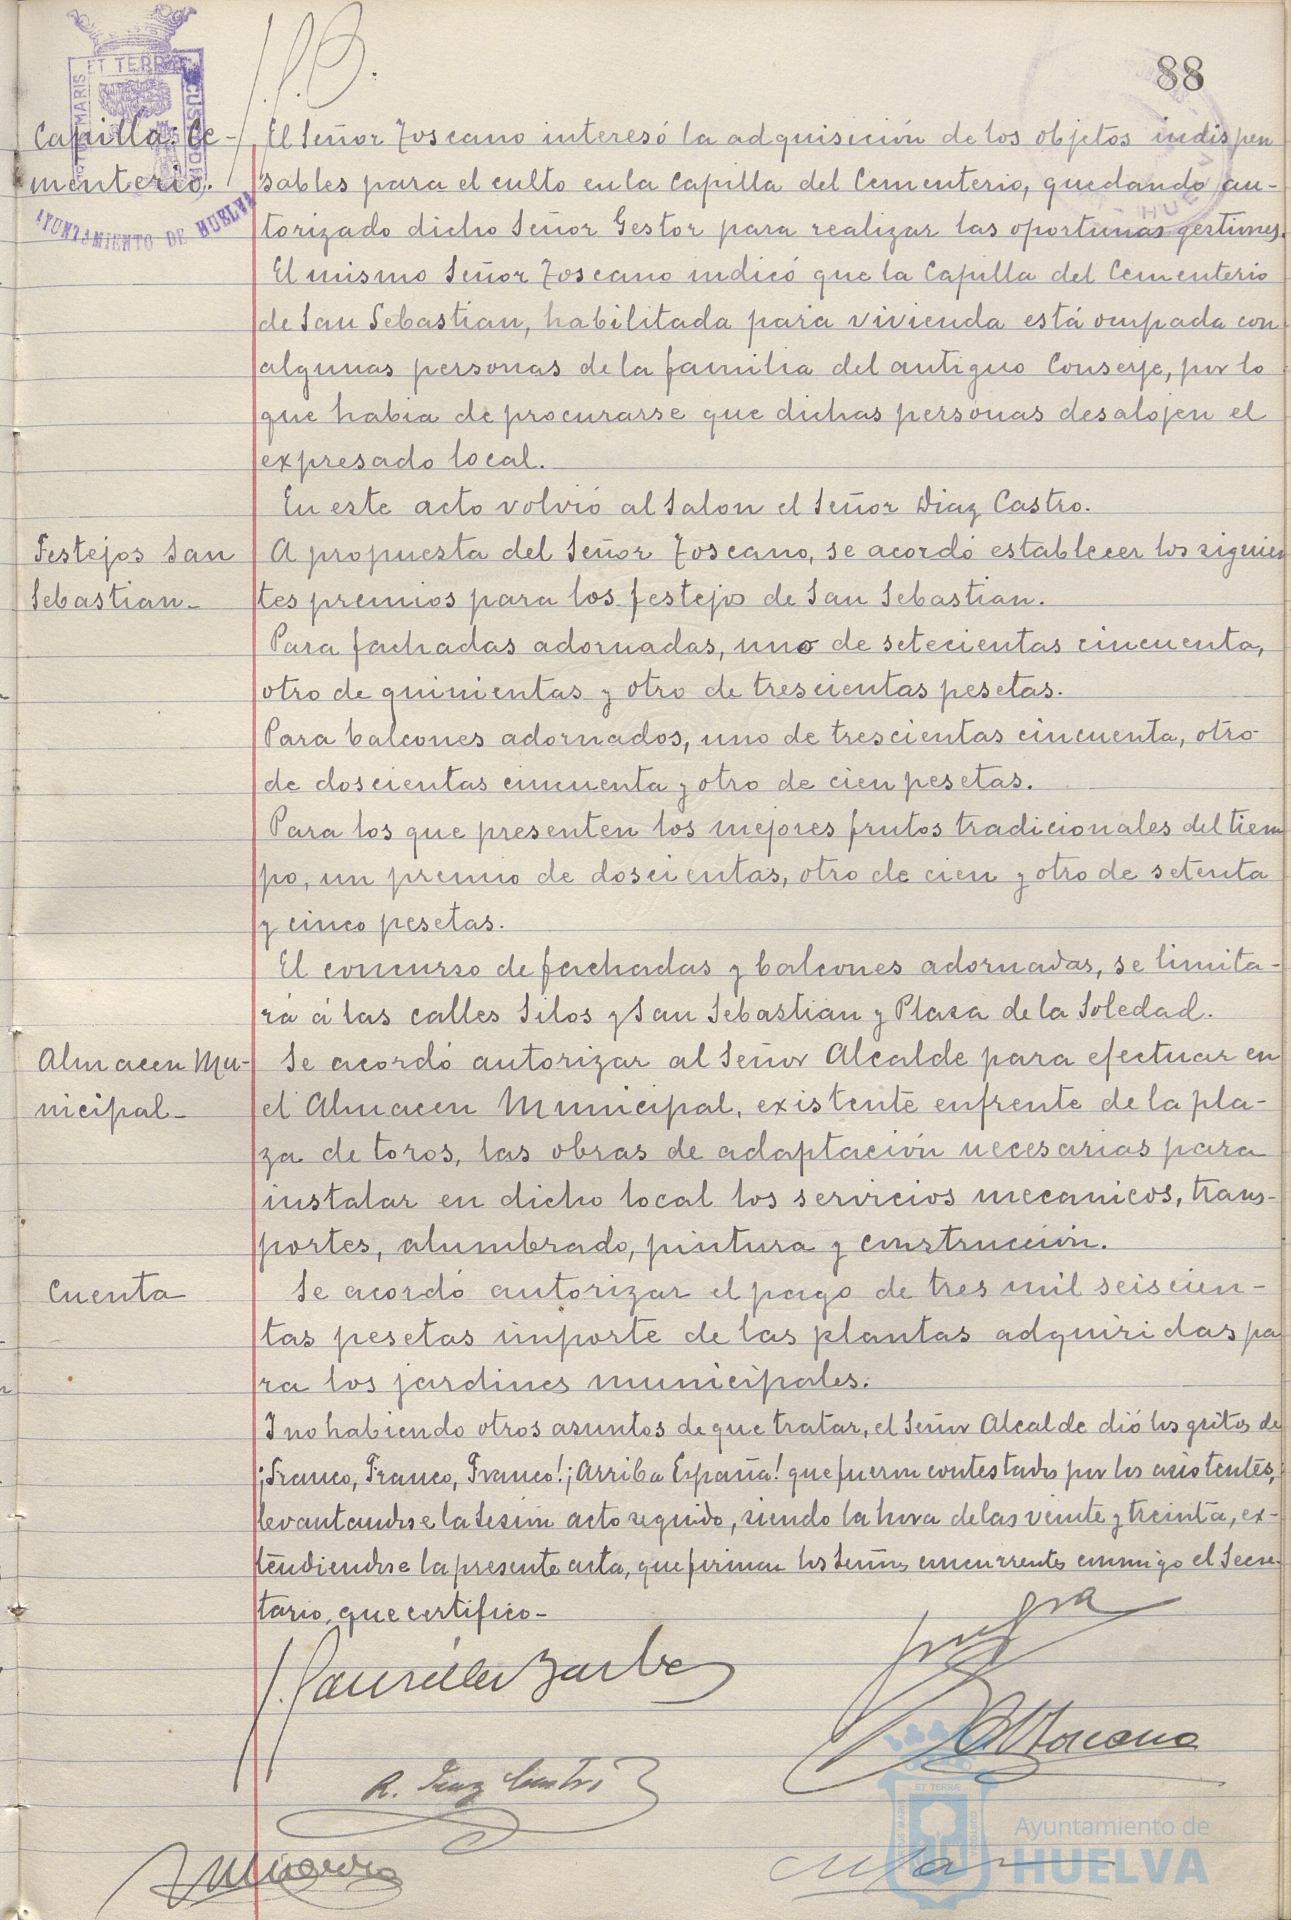 88
Capilla: Ce-
menterio.
El Señor Toscano interesó la adquisición de los objetos indispen
sables para el culto en la Capilla del Cementerio, quedando au-
torizado dicho Señor Gestor para realizar las oportunas gestiones.
El mismo Señor Toscano indicó que la Capilla del Cementerio
de San Sebastian, habilitada para vivienda está ocupada con
algunas personas de la familia del antiguo Conserje, por lo
que habia de procurarse que dichas personas desalojen el
expresado local.
En este acto volvió al Salon el Señor Diaz Castro.
Festejos San
Sebastian-
A propuesta del Señor Toscano, se acordó establecer los siguien
tes premios para los festejos de San Sebastian.
Para fachadas adornadas, uno de setecientas cincuenta,
otro de quinientas y otro de trescientas pesetas.
Para balcones adornados, uno de trescientas cincuenta, otro
de doscientas cincuenta y otro de cien pesetas.
Para los que presenten los mejores frutos tradicionales del tiem
po, un premio de doscientas, otro de cien y otro de setenta
y cinco pesetas.
El concurso de fachadas y balcones adornadas, se limita-
rá á las calles Silos y San Sebastian y Plaza de la Soledad.
Almacen Mu-
nicipal-
Se acordó autorizar al Señor Alcalde para efectuar en
el Almacen Municipal, existente enfrente de la pla-
za de toros, las obras de adaptación necesarias para
instalar en dicho local los servicios mecanicos, trans-
portes, alumbrado, pintura y construcción.
Cuenta
Se acordó autorizar el pago de tres mil seiscien-
tas pesetas importe de las plantas adquiridas pa
ra los jardines municipales.
Y no habiendo otros asuntos de que tratar, el Señor Alcalde dió los gritos de
¡Franco, Franco, Franco! ¡Arriba España! que fueron contestados por los asistentes,
levantandose la Sesión acto seguido, siendo la hora de las veinte y treinta, ex-
tendiendose la presente acta, que firman los Señores concurrentes conmigo el Secre-
tario, que certifico-
R. Diaz Castro
Toscano
ET TERRÆ
AYUNTAMIENTO DE HUELVA
Ayuntamiento de
HUELVA